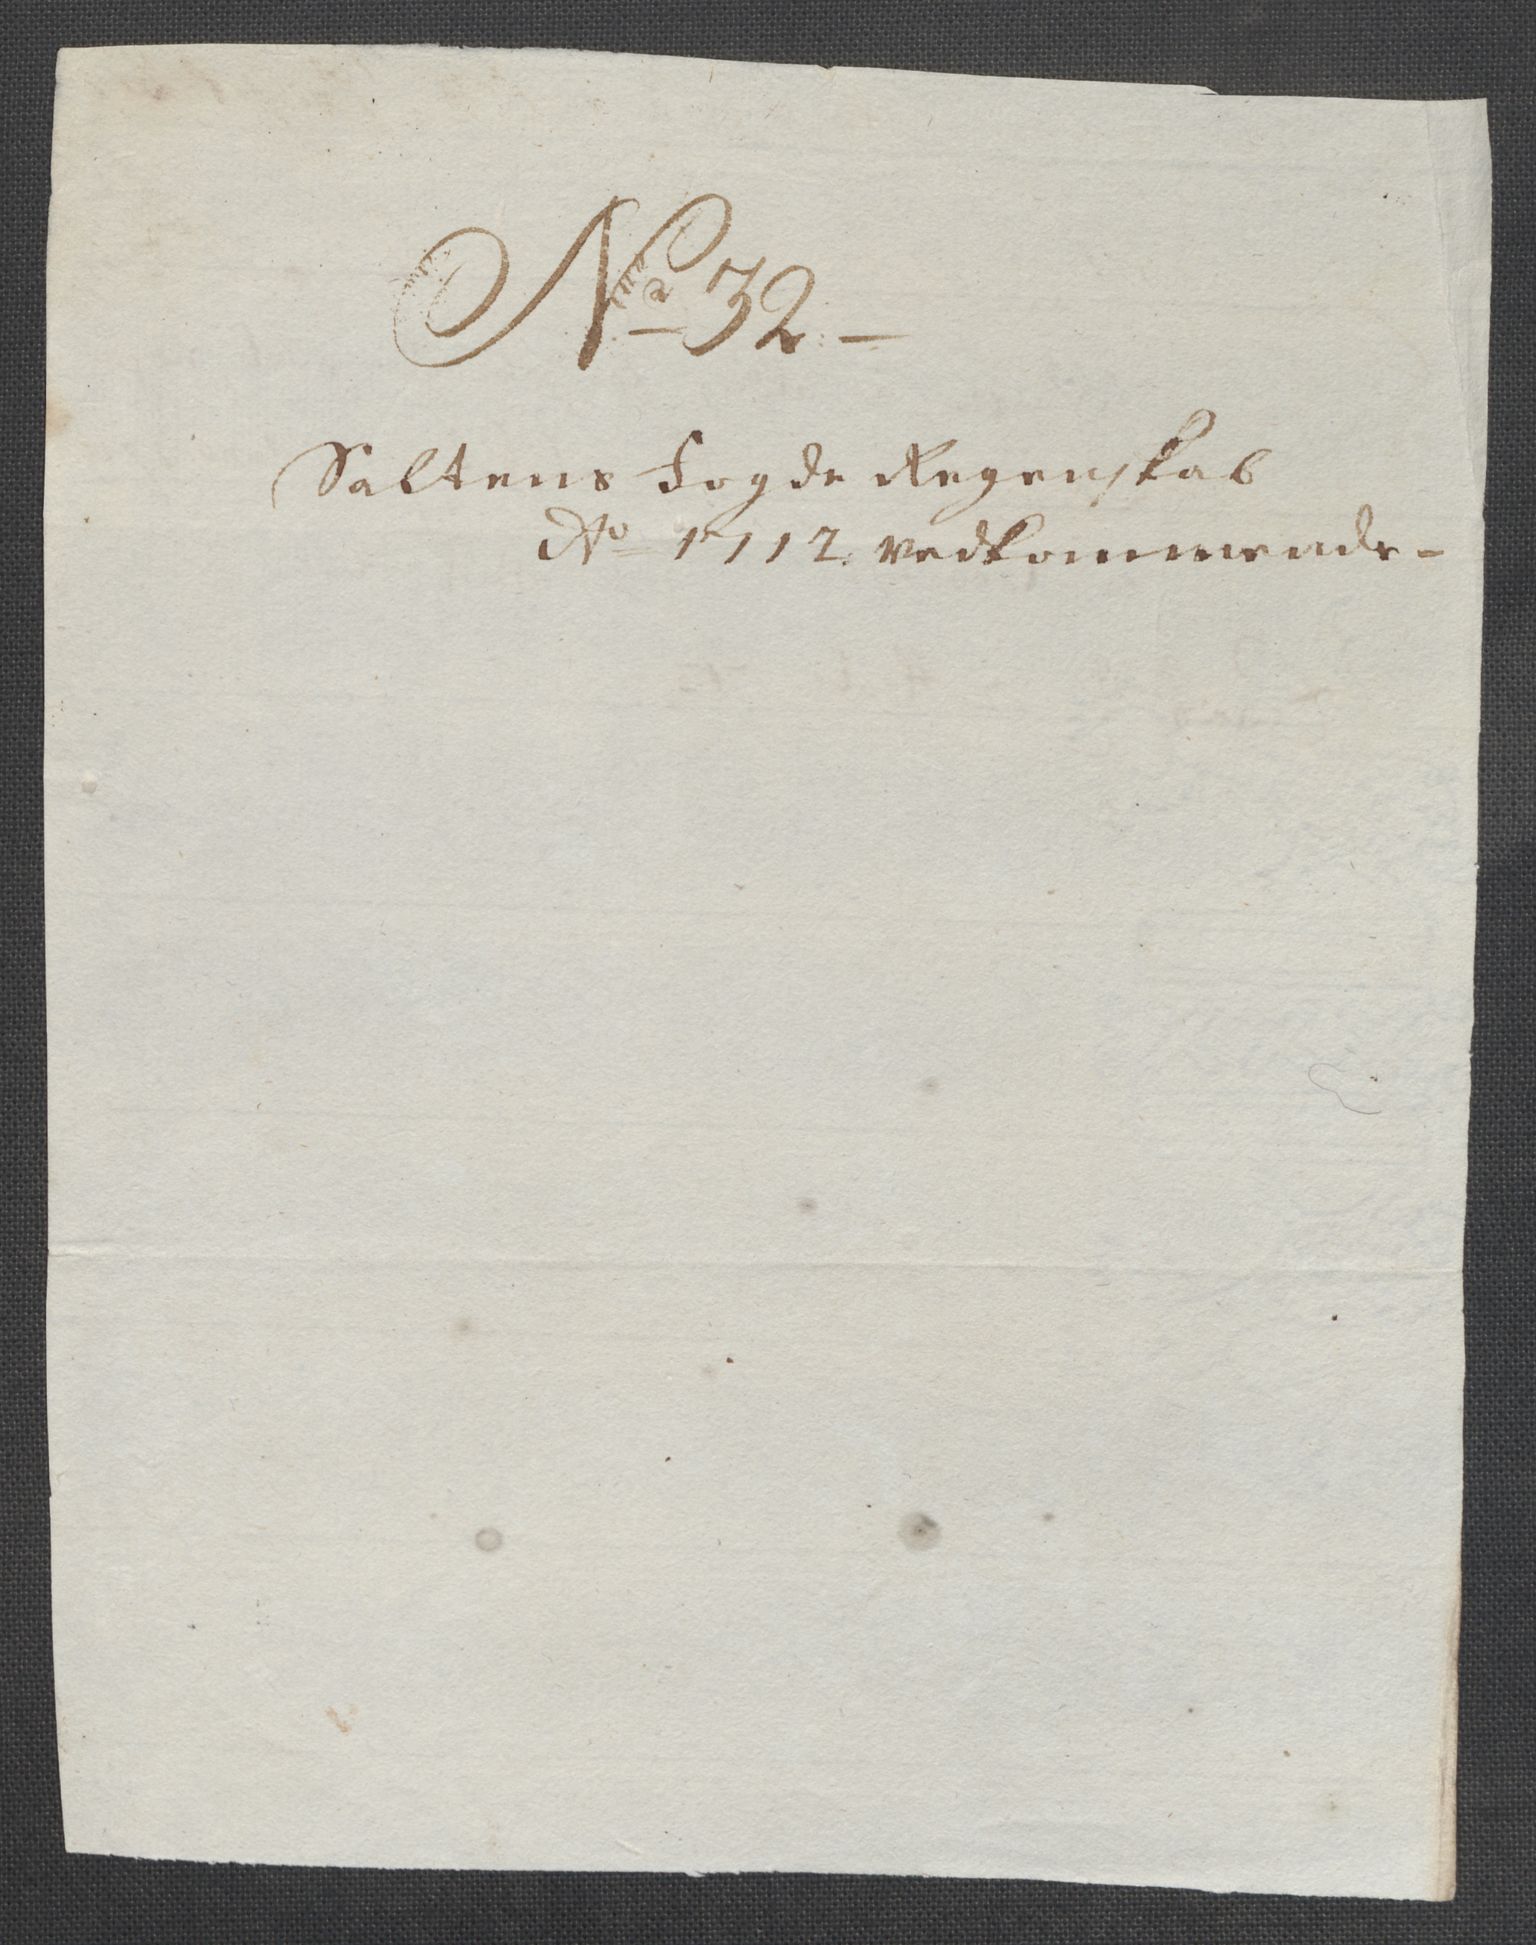 No 32
Saltens Fogde Regenskab
Ao 1712 vedkommende